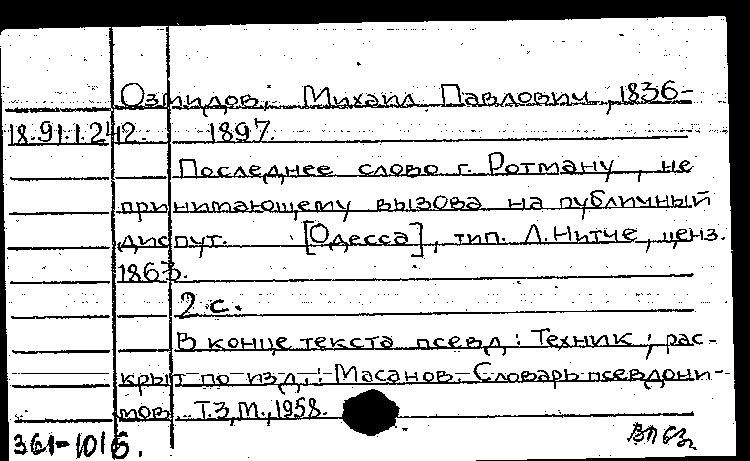 Озмидов, Михаил Павлович, 1836-
18.91.1.242. 1897.
Последнее слово г. Ротману, не
принимающему вызова на публичный
диспут. [Одесса], тип. Л. Нитче, ценз.
1863.
2 с.
В конце текста псевд.: Техник; рас-
крыт по изд.: Масанов. Словарь псевдони-
мов. Т.3, М., 1958.
361-1016.